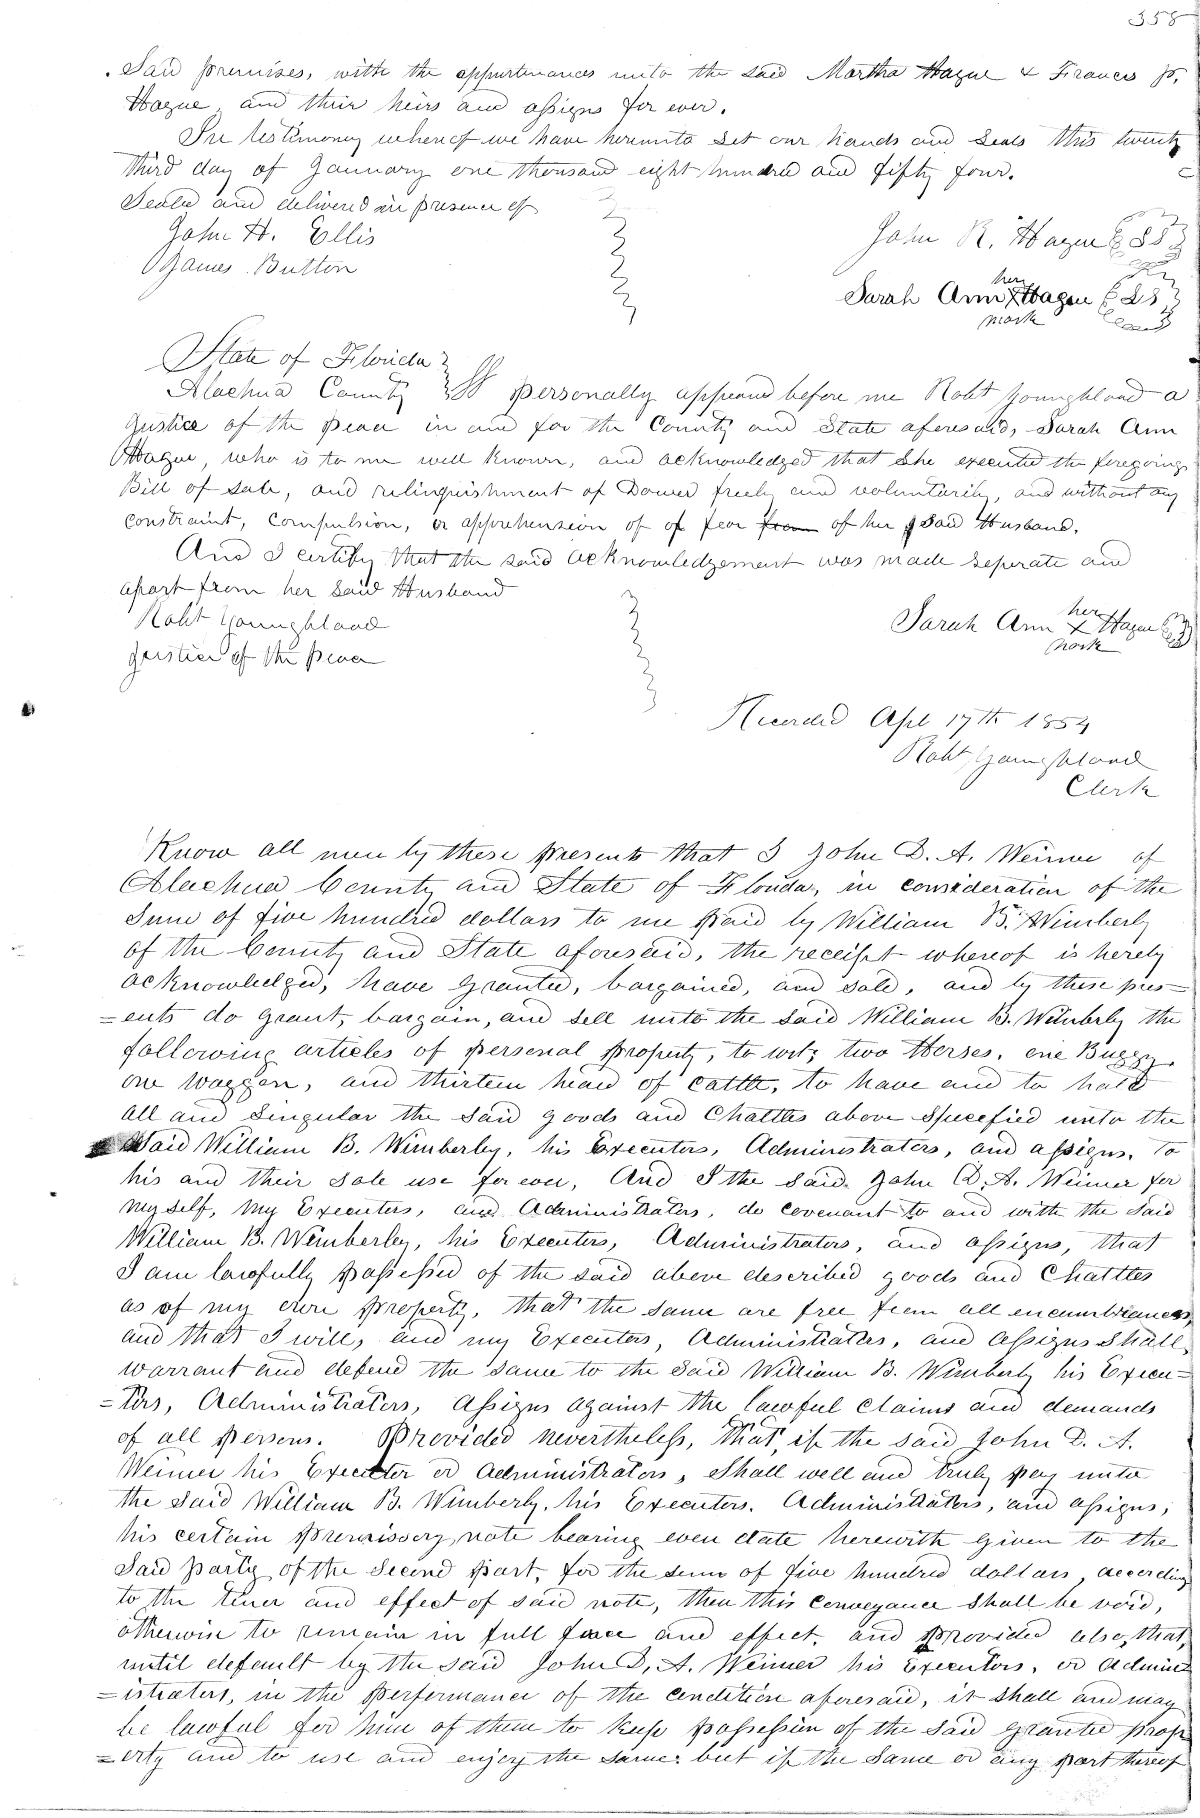 358
Said premises, with the appurtenances unto the said Martha Hague & Frances P.
Hague, and their heirs and assigns for ever.
In testimony whereof we have hereunto set our hands and seals this twenty
third day of January one thousand eight hundred and fifty four.
Sealed and delivered in presence of
John H. Ellis
James Button
John R. Hague
her
Sarah Ann X Hague
mark
State of Florida
Alachua County SS personally appeared before me Robt Youngblood a
Justice of the peace in and for the County and State aforesaid, Sarah Ann
Hague, who is to me well known, and acknowledged that she executed the foregoing
Bill of sale, and relinquishment of Dower freely and voluntarily, and without any
constraint, compulsion, or apprehension of of fear from of her said Husband.
And I certify that the said acknowledgement was made seperate and
apart from her said Husband
Robt Youngblood
Justice of the peace
her
Sarah Ann X Hague
mark
Recorded Apl 17th 1854
Robt Youngblood
Clerk
Know all men by these presents that I John D. A. Weimer of
Alachua County and State of Florida, in consideration of the
Sum of five hundred dollars to me paid by William B. Wimberly
of the County and State aforesaid, the receipt whereof is hereby
acknowledged, have granted, bargained, and sold, and by these pres=
=ents do grant, bargain, and sell unto the said William B. Wimberly the
following articles of personal property, to wit; two Horses, one Buggy
one waggon, and thirteen head of cattle, to have and to hold
all and singular the said goods and Chattles above specified unto the
Said William B. Wimberley, his Executors, Administrators, and assigns, to
his and their sole use forever, And I the said John D. A. Weimer for
myself, my Executors, and Administrators, do covenant to and with the said
William B. Wimberley, his Executors, Administrators, and assigns, that
I am lawfully possessed of the said above described goods and Chattles
as of my own property, that the same are free from all encumbrances,
and that I will, and my Executors, Administrators, and assigns shall
warrant and defend the same to the said William B. Wimberly his Execu=
=tors, Administrators, assigns against the lawful claims and demands
of all persons. Provided nevertheless, that, if the said John D. A.
Weimer his Executor or Administrators, shall well and truly pay unto
the said William B. Wimberly, his Executors, Administrators, and assigns,
his certain promissory note bearing even date herewith given to the
said party of the second part, for the sum of five hundred dollars, according
to the tenor and effect of said note, then this conveyance shall be void,
otherwise to remain in full force and effect, and provided also, that,
until default by the said John D. A. Weimer his Executors, or admin=
=istrators, in the performance of the condition aforesaid, it shall and may
be lawful for him of them to keep possession of the said granted prop
=erty and to use and enjoy the same: but if the same or any part thereof